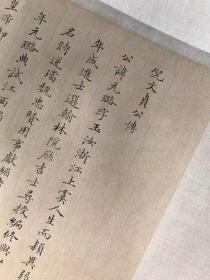 倪文貞公傳
公諱元璐字玉汝浙江上虞人生而穎異弱
年成進士選翰林院庶吉士尋授編修興
君時逆璫魏忠賢用事獻媚者
元璐典試江西
皇帝即